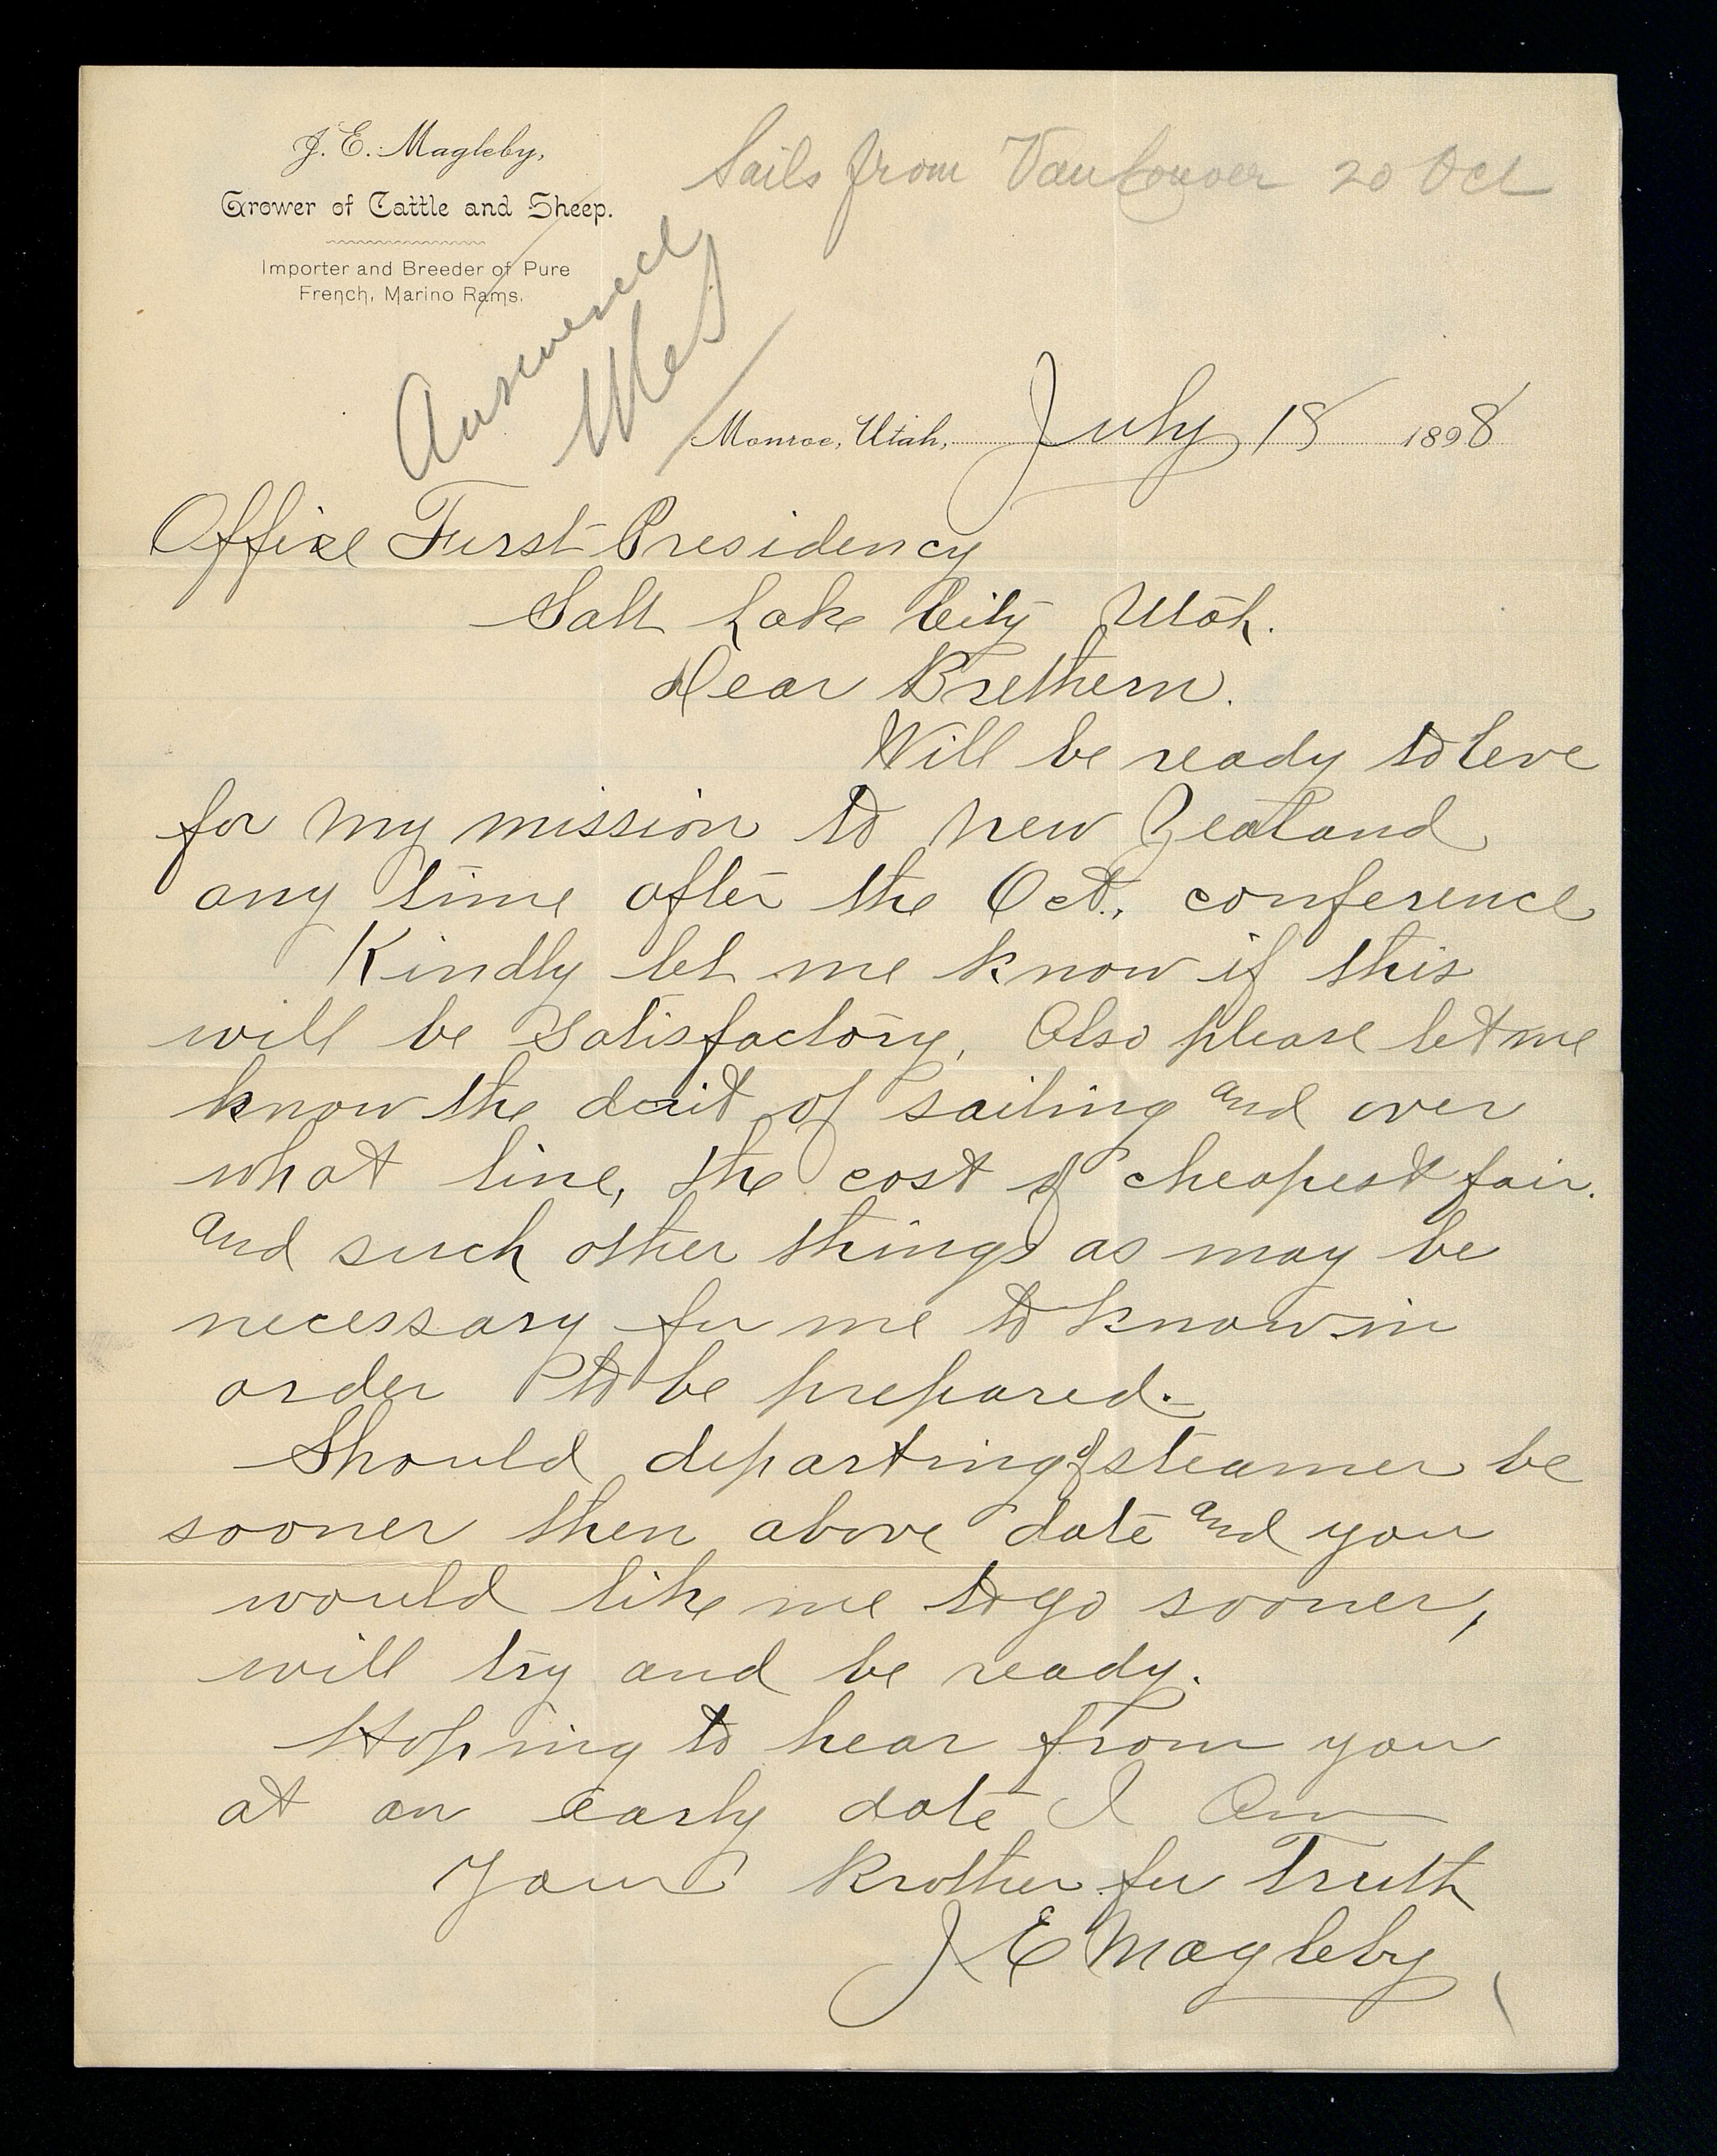 J. E. Magleby,
Grower of Cattle and Sheep.
Importer and Breeder of Pure
French, Marino Rams.
Sails from Vancouver 20 Oct
Answered
Monroe, Utah, July 18 1898
Office Furst Presidency
Salt Lake City Utah.
Dear Brethern.
Will be ready to leve
for my mission to New Zealand
any time after the Oct., conference
Kindly let me know if this
will be satisfactory, Also please let me
know the dait of sailing and over
what line, the cost of cheapest fair.
and such other things as may be
necessary for me to know in
order to be prepared.
Should departing of steamer be
sooner then above date and you
would like me to go sooner,
will try and be ready.
Hoping to hear from you
at an early date I Am
Your Brother for Truth
J E Magleby